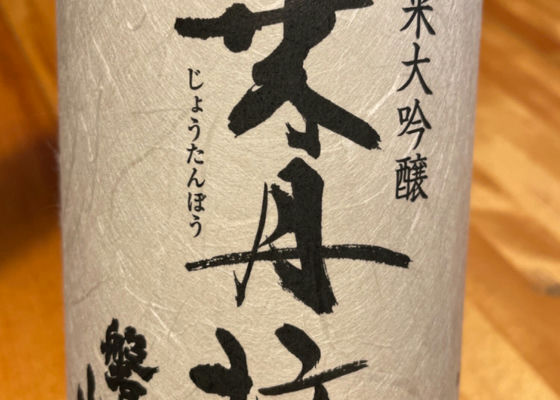 米大吟醸
乗丹
じょうたんぼう